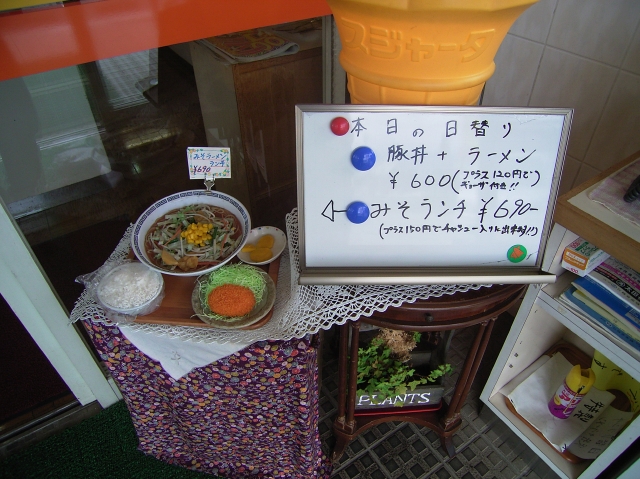 スジャータ
本日の日替り
豚丼+ラーメン
¥600(プラス120円で
ギョーザ付き!!)
みそランチ ¥690-
(プラス150円でチャシュー入りに出来ます!!)
みそラーメン
ランチ
¥690
PLANTS